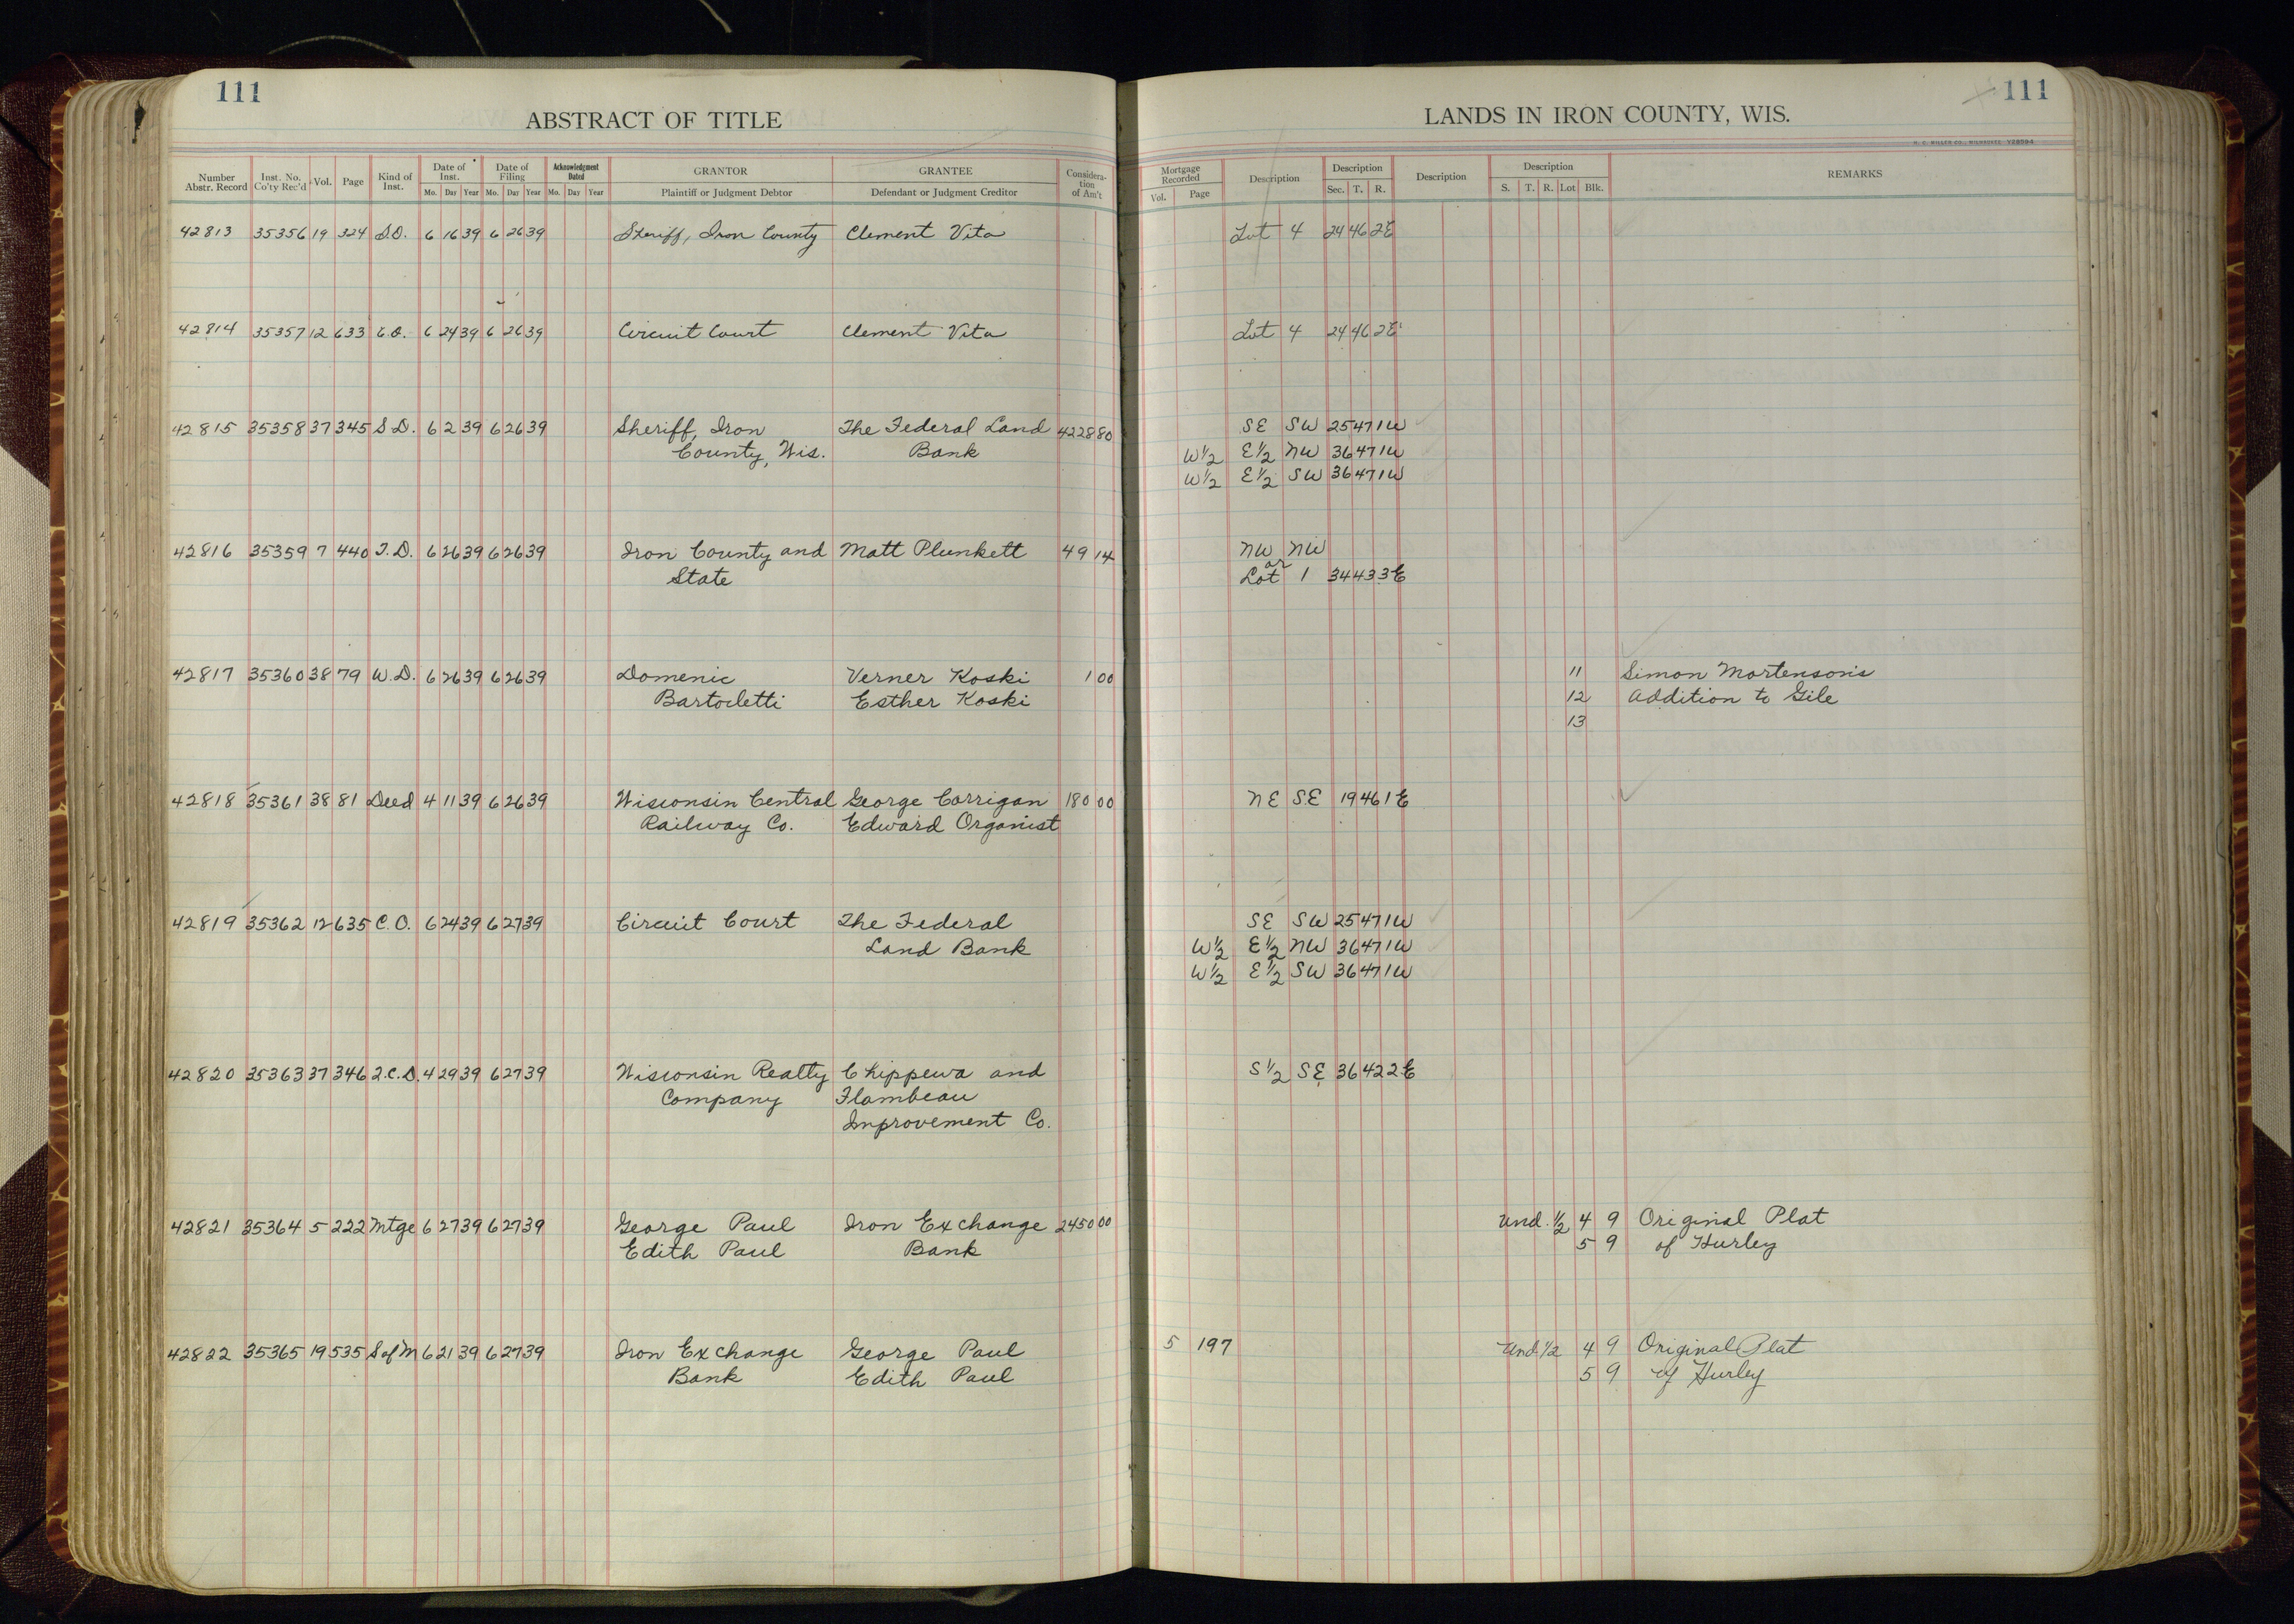 111
ABSTRACT OF TITLE
Number Abstr. Record | Inst. No. Co'ty Rec'd | Vol. | Page | Kind of Inst. | Date of Inst. Mo. Day Year | Date of Filing Mo. Day Year | Acknowledgment Dated Mo. Day Year | GRANTOR Plaintiff or Judgment Debtor | GRANTEE Defendant or Judgment Creditor | Consideration of Am't
42813 35356 19 324 S.D. 6 16 39 6 26 39 Sheriff, Iron County Clement Vita
42814 35357 12 633 C.O. 6 24 39 6 26 39 Circuit Court Clement Vita
42815 35358 37 345 S.D. 6 2 39 6 26 39 Sheriff, Iron The Federal Land 4228 80
County, Wis. Bank
42816 35359 7 440 T.D. 6 26 39 6 26 39 Iron County and Matt Plunkett 49 14
State
42817 35360 38 79 W.D. 6 26 39 6 26 39 Domenic Verner Koski 1 00
Bartoletti Esther Koski
42818 35361 38 81 Deed 4 11 39 6 26 39 Wisconsin Central George Corrigan 180 00
Railway Co. Edward Organist
42819 35362 12 635 C.O. 6 24 39 6 27 39 Circuit Court The Federal
Land Bank
42820 35363 37 346 Q.C.D. 4 29 39 6 27 39 Wisconsin Realty Chippewa and
Company Flambeau
Improvement Co.
42821 35364 5 222 Mtge 6 27 39 6 27 39 George Paul Iron Exchange 2450 00
Edith Paul Bank
42822 35365 19 535 S of M 6 21 39 6 27 39 Iron Exchange George Paul
Bank Edith Paul
111
LANDS IN IRON COUNTY, WIS.
H. C. MILLER CO., MILWAUKEE Y28594
Mortgage Recorded Vol. Page | Description | Description Sec. T. R. | Description | Description S. T. R. Lot Blk. | REMARKS
Lot 4 24 46 2E
Lot 4 24 46 2E
SE SW 25 47 1W
W½ E½ NW 36 47 1W
W½ E½ SW 36 47 1W
NW NW
or
Lot 1 34 43 3E
11 Simon Mortenson's
12 Addition to Gile
13
NE SE 19 46 1E
SE SW 25 47 1W
W½ E½ NW 36 47 1W
W½ E½ SW 36 47 1W
S½ SE 36 42 2E
Und. ½ 4 9 Original Plat
5 9 of Hurley
5 197 Und. ½ 4 9 Original Plat
5 9 of Hurley